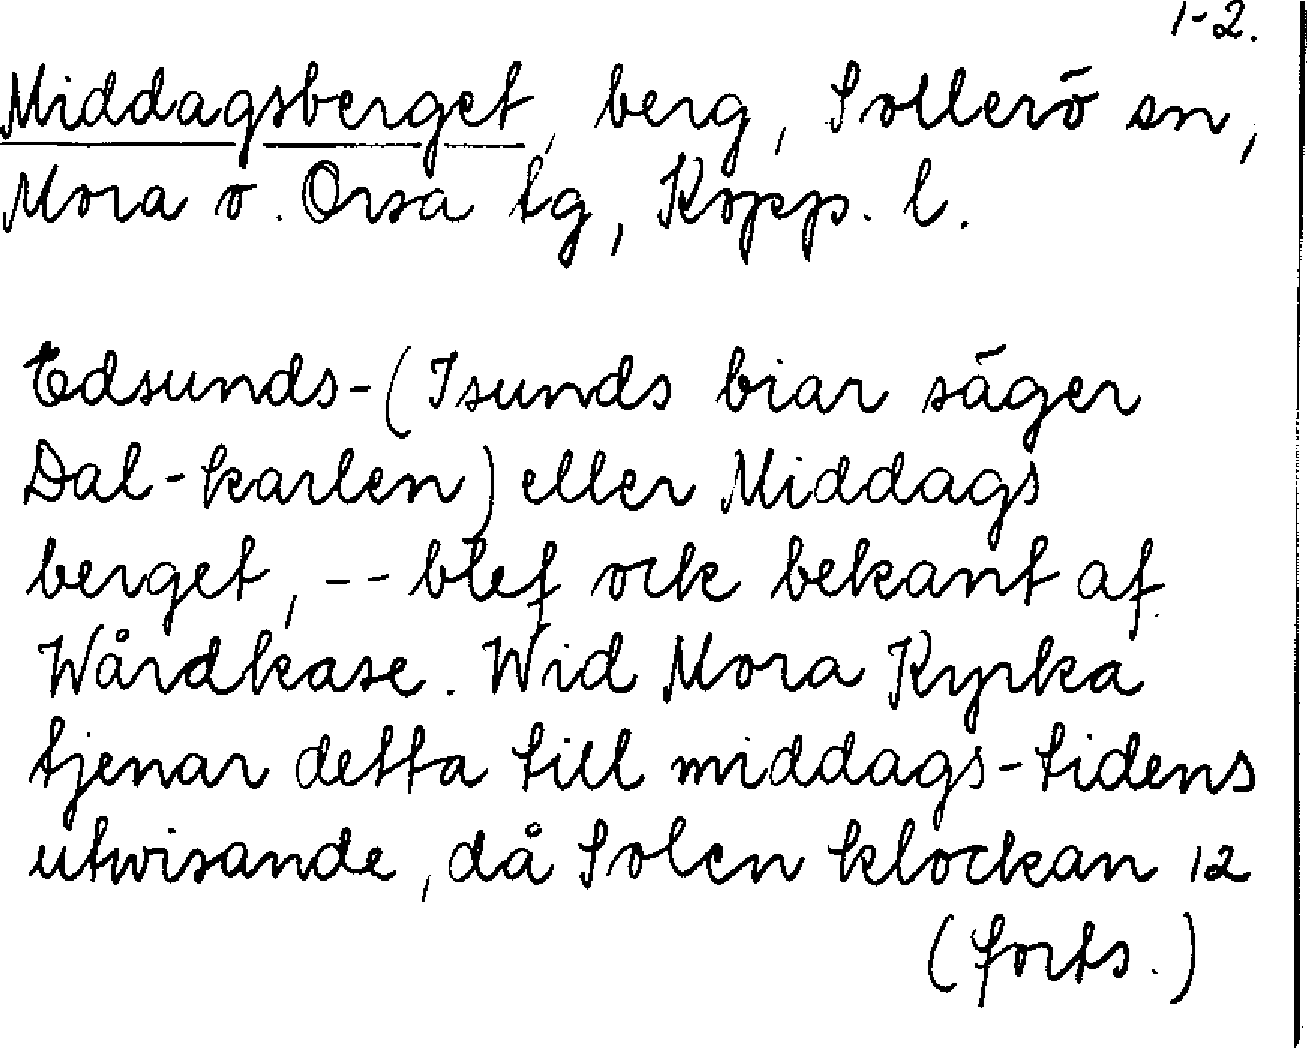 1-2.
Middagsberget, berg, Sollerö sn,
Mora o. Orsa tg, Kopp. l.
Edsunds-(Isunds biar säger
Dal-karlen) eller Middags
berget, -- blef ock bekant af
Wårdkase. Wid Mora Kyrka
tjenar detta till middags-tidens
utwisande, då Solen klockan 12
(forts.)